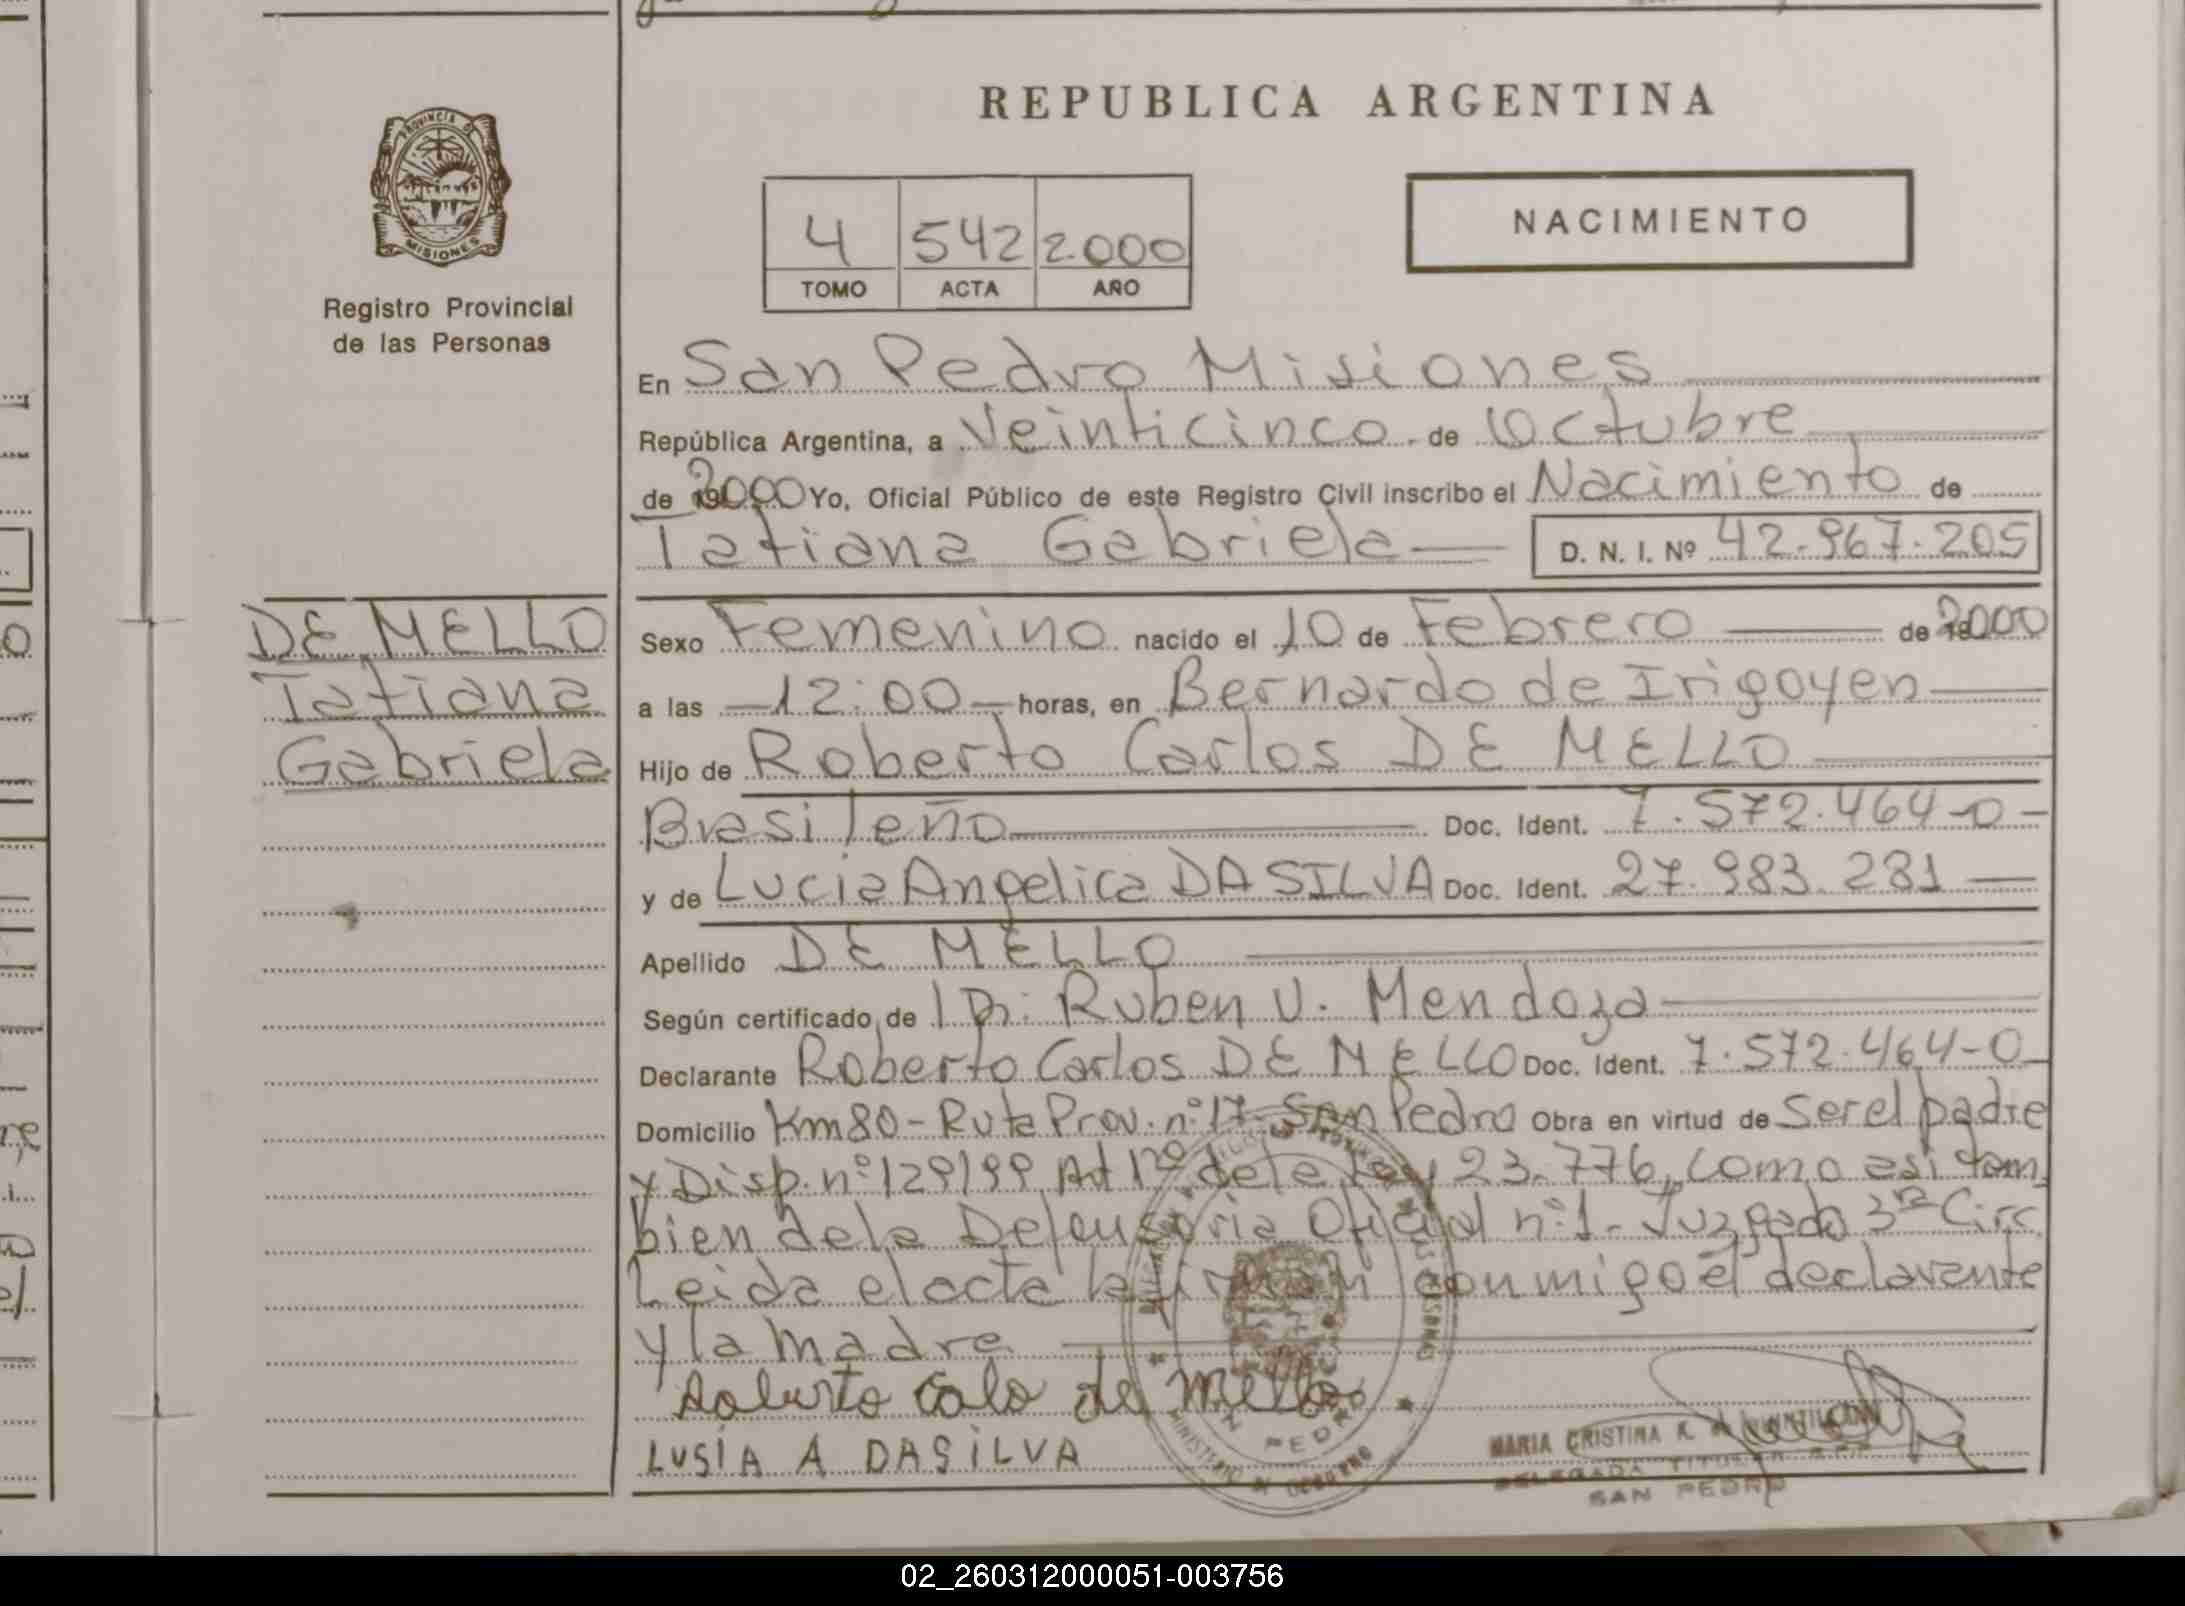 REPUBLICA ARGENTINA
PROVINCIA DE MISIONES
Registro Provincial
de las Personas
4 542 2000
TOMO ACTA AÑO
NACIMIENTO
En San Pedro Misiones
República Argentina, a Veinticinco de Octubre
de 2000 Yo, Oficial Público de este Registro Civil inscribo el Nacimiento de
Tatiana Gabriela D. N. I. Nº 42.967.205
DE MELLO
Tatiana
Gabriela
Sexo Femenino nacido el 10 de Febrero de 2000
a las 12:00 horas, en Bernardo de Irigoyen
Hijo de Roberto Carlos DE MELLO
Brasileño Doc. Ident. 7.572.464-0
y de Lucia Angelica DA SILVA Doc. Ident. 27.983.281
Apellido DE MELLO
Según certificado de Dr. Ruben V. Mendoza
Declarante Roberto Carlos DE MELLO Doc. Ident. 7.572.464-0
Domicilio Km80-Ruta Prov. nº17-San Pedro Obra en virtud de Ser el padre
y Disp. nº129/99 Art 12º de la Ley 23.776, como asi tam
bien de la Defensoria Oficial nº1-Juzgado 3ra Circ
Leida el acta la firman conmigo el declarante
y la madre
Roberto Calo de Mello
LUSIA A DASILVA
MARIA CRISTINA R.
DELEGADA TITULAR
SAN PEDRO
SAN PEDRO
MINISTERIO DE GOBIERNO
02_260312000051-003756